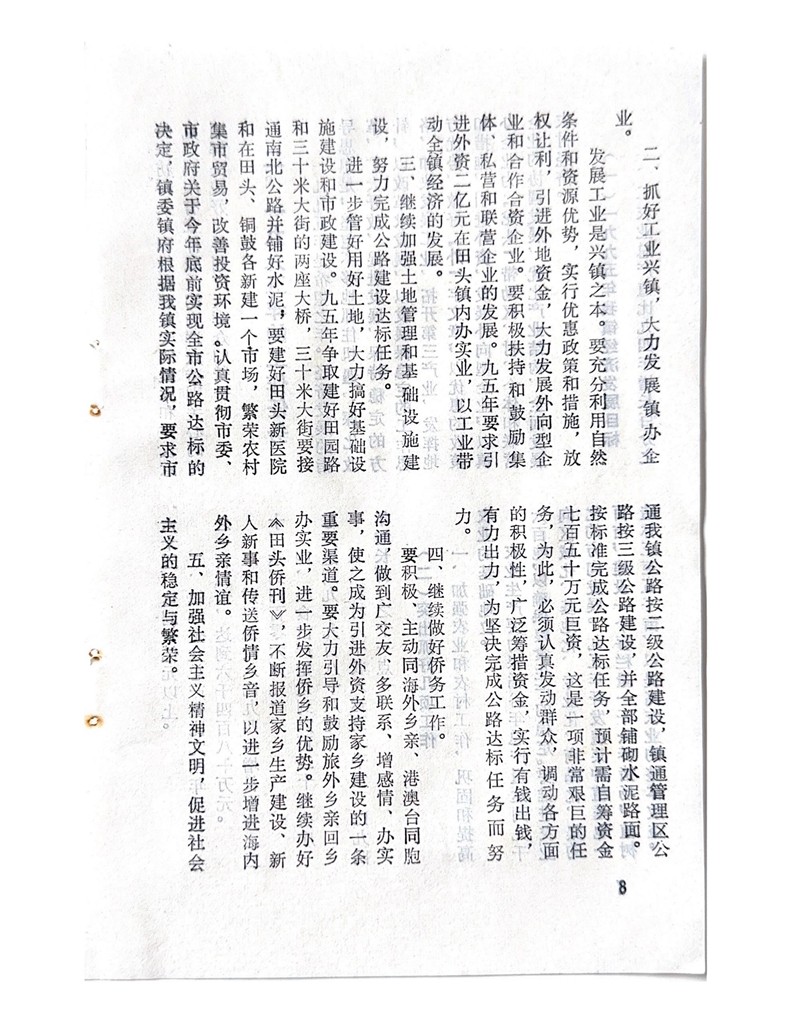 业。
二、抓好工业兴镇，大力发展镇办企
发展工业是兴镇之本。要充分利用自然
条件和资源优势，实行优惠政策和措施，放
权让利，引进外地资金，大力发展外向型企
业和合作合资企业。要积极扶持和鼓励集
体、私营和联营企业的发展。九五年要求引
进外资二亿元在田头镇内办实业，以工业带
动全镇经济的发展。
三、继续加强土地管理和基础设施建
设，努力完成公路建设达标任务。
进一步管好用好土地，大力搞好基础设
施建设和市政建设。九五年争取建好田园路
和三十米大街的两座大桥，三十米大街要接
通南北公路并铺好水泥；要建好田头新医院
和在田头、铜鼓各新建一个市场，繁荣农村
集市贸易，改善投资环境。认真贯彻市委、
市政府关于今年底前实现全市公路达标的
决定，镇委镇府根据我镇实际情况，要求市
通我镇公路按二级公路建设，镇通管理区公
路按三级公路建设，并全部铺砌水泥路面。
按标准完成公路达标任务，预计需自筹资金
七百五十万元巨资，这是一项非常艰巨的任
务，为此，必须认真发动群众，调动各方面
的积极性，广泛筹措资金，实行有钱出钱，
有力出力，为坚决完成公路达标任务而努
力。
四、继续做好侨务工作。
要积极、主动同海外乡亲、港澳台同胞
沟通，做到广交友、多联系、增感情、办实
事，使之成为引进外资支持家乡建设的一条
重要渠道。要大力引导和鼓励旅外乡亲回乡
办实业，进一步发挥侨乡的优势。继续办好
《田头侨刊》，不断报道家乡生产建设、新
人新事和传送侨情乡音，以进一步增进海内
外乡亲情谊。
五、加强社会主义精神文明，促进社会
主义的稳定与繁荣。
8